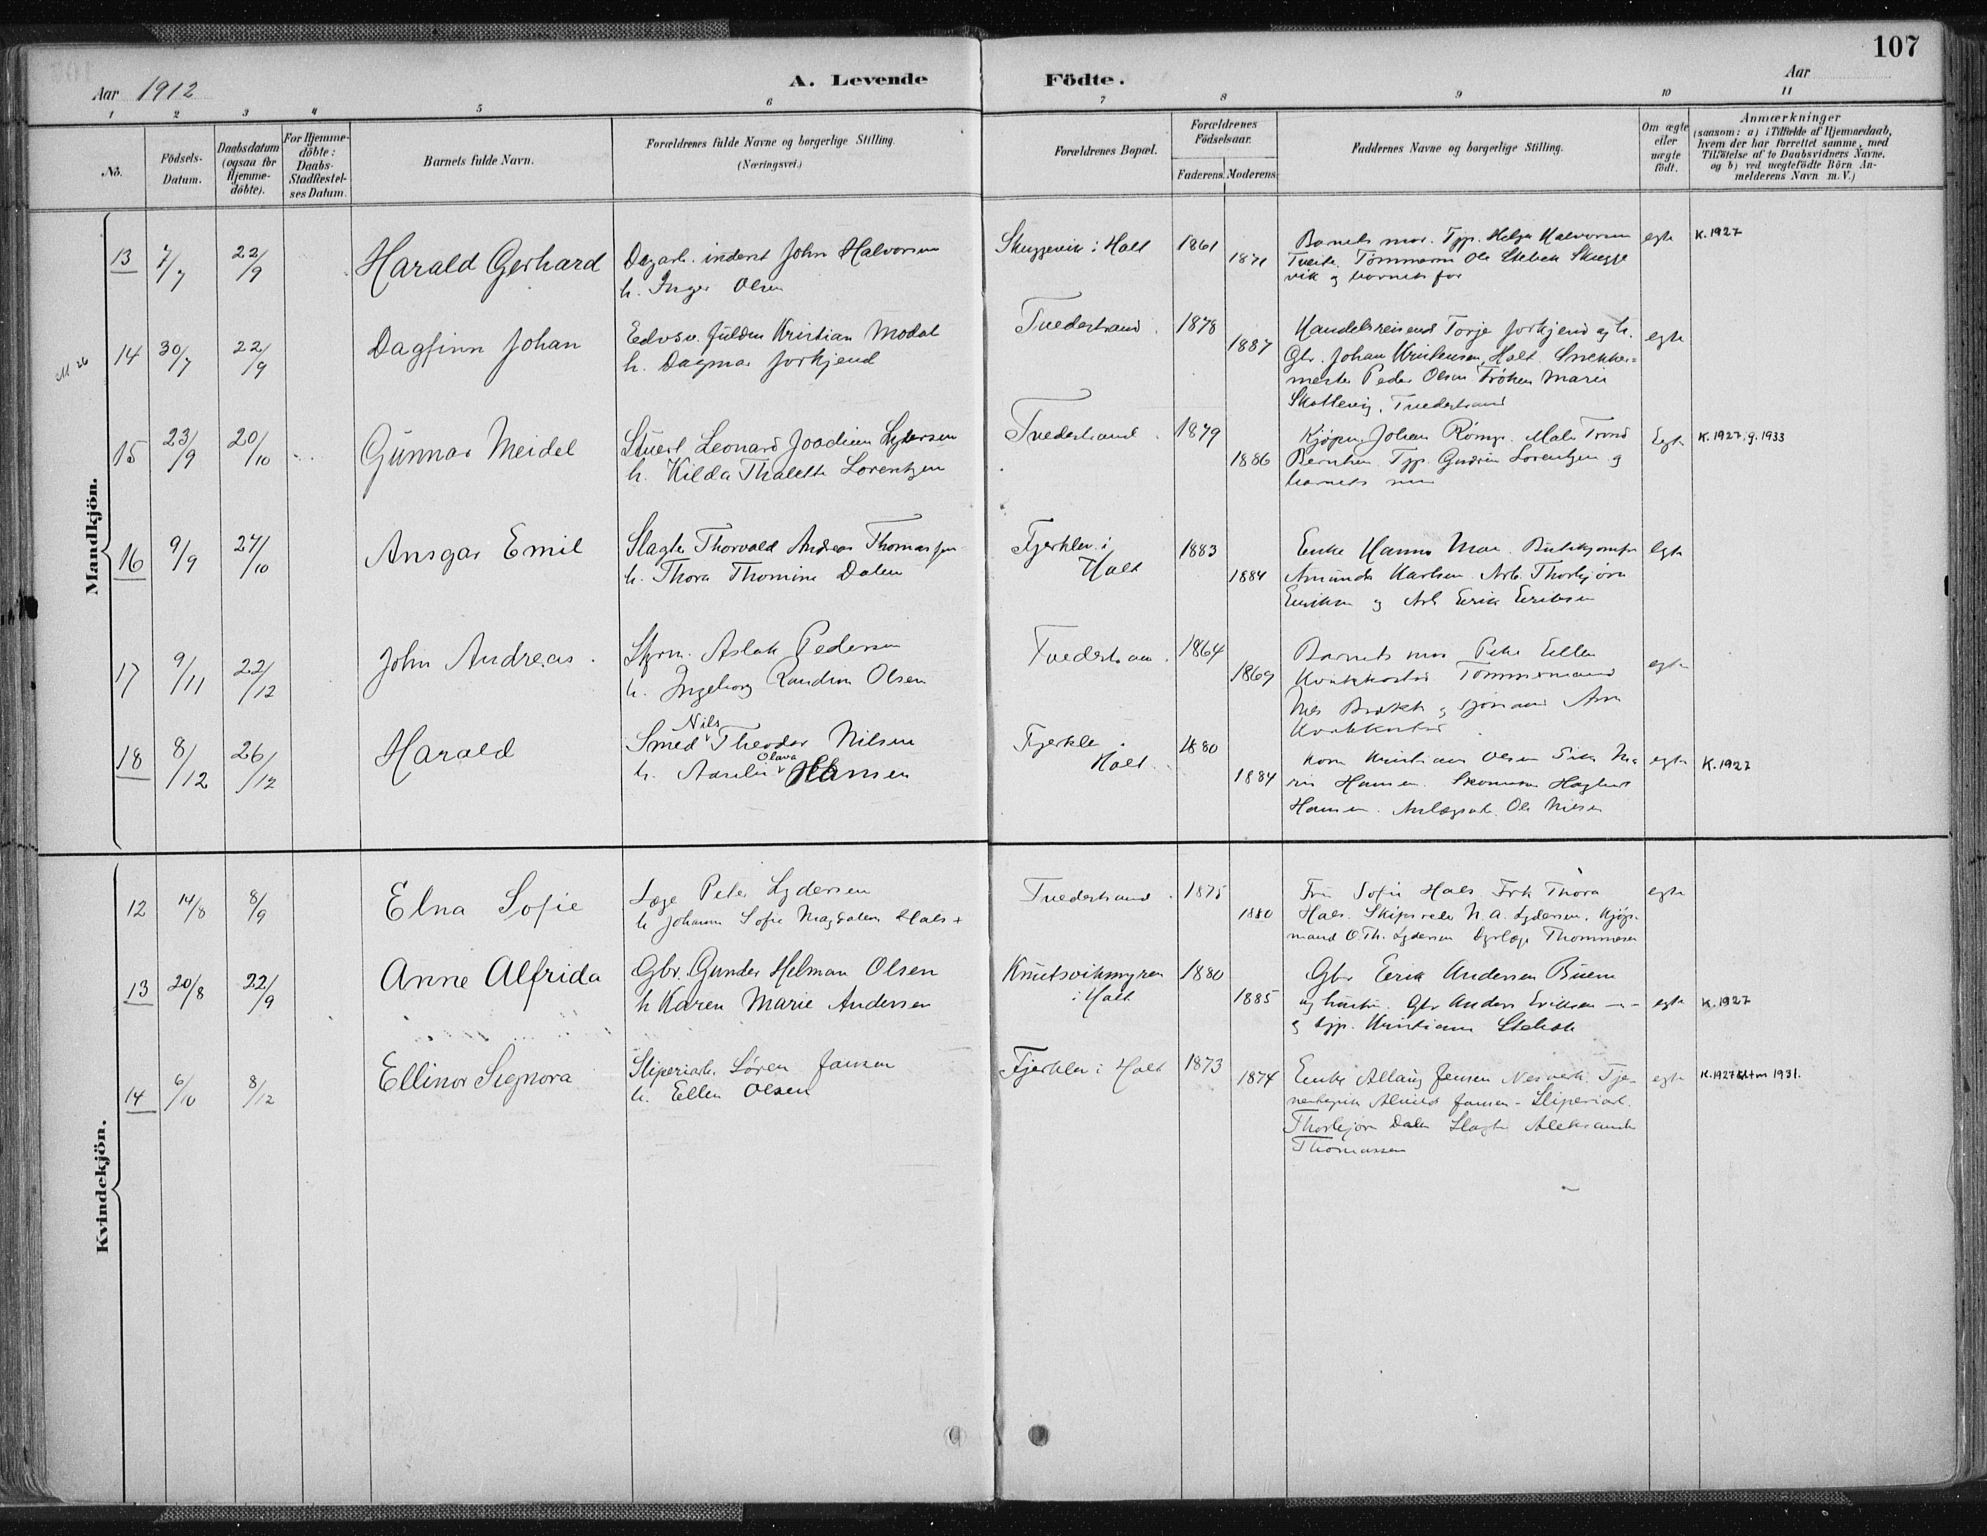 107
Aar 1912
A. Levende Födte.
Aar
1 2 3 4 5 6 7 8 9 10 11
No.
Födsels-Datum.
Daabsdatum (ogsaa for Hjemme-döbte).
For Hjemme-döbte: Daabs-Stadfæstel-ses Datum.
Barnets fulde Navn.
Forældrenes fulde Navne og borgerlige Stilling. (Næringsvei.)
Forældrenes Bopæl.
Forældrenes Födselsaar.
Faderens. Moderens.
Faddernes Navne og borgerlige Stilling.
Om ægte eller uægte født.
Anmærkninger
(saasom: a) i Tilfælde af Hjemmedaab,
hvem der har forrettet samme, med
Tilføielse af to Daabsvidners Navne,
og b) ved uægtefödte Börn An-
melderens Navn m. V.)
Mandkjön.
13 7/7 22/9 Harald Gerhard
Dagarb. inderst John Halvorsen
h. Inger Olsen
Skuggevik i Holt 1861 1871
Barnets mor. Tjp. Helga Halvorsen
Tveite. Tømmerm Ole Stebek Skugge
vik og barnets far
egte K. 1927
14 30/7 22/9 Dagfinn Johan
Kristian Modal
h. Dagmar Jorkjend
Tvedestrand. 1878 1887
Handelsreisend Torje Jorkjend og h.
Gbr. Johan Kristensen, Holt. Snekker-
mester Peder Olsen Frøken Marie
Skottevig, Tvedestrand
egte
15 23/9 20/10 Gunnar Meidel
Stuert Leonard Joachim Lydersen
h. Kilda Thalette Lorentzen
Tvedestrand. 1879 1886
Kjøpm. Johan Maler Trond
Berntsen Tjp. Gudrun Lorentzen og
barnets mor
Egte K. 1927. 9. 1933
16 9/9 27/10 Ansgar Emil
Slagter Thorvald Andreas Thomassen
h. Thora Thomine Dalen
Fjerklev i Holt 1883 1884
Enke Hanna Moe.
Amunda Karlsen. Arb. Thorbjørn
Eriksen og Arb Erik Eriksen
egte
17 9/11 22/12 John Andreas.
Styrm. Aslak Pedersen
h. Ingeborg Randine Olsen
Tvedestran. 1864 1869
Barnets mor Pike Ellen
Tømmermand
Nils og sjømand
egte
18 8/12 26/12 Harald
Smed Nils Theodor Nilsen
h. Aaseline Olava Hansen
Fjerklev i Holt. 1880 1884
Kone Kristiane Olsen Pike Ma
rie Hansen.
Hansen. Anlægsarb. Ole Nilsen
egte K. 1927
Kvindekjön.
12 14/8 8/9 Elna Sofie
Læge Peter Lydersen
h Johanne Sofie Magdalene Hals
Tvedestrand. 1875 1880
Fru Sofie Hals Frk Thora
Hals. Skipsreder N. A. Lydersen, Kjøp-
mand O. Th. Lydersen Dyrlæge Thommesen
egte
13 20/8 22/9 Anne Alfrida
Gbr. Gunder Helman Olsen
h Karen Marie Andersen
Knutsvikmyren i Holt 1880 1885
Gbr Erik Andersen Buene
og hustru. Gbr Anders Eriksen
og tjp. Kristiane Stebek
egte K. 1927
14 6/10 8/12 Ellinor Signora
Sliperiarb. Søren Jansen
h. Ellen Olsen
Fjerklev i Holt 1873 1874
Enke Allaug Jensen Nesverk. Tje-
nestepike Jansen - Sliperiarb.
Thorbjørn Dalen Slagter Aleksander
Thomassen
egte K. 1927 1931.